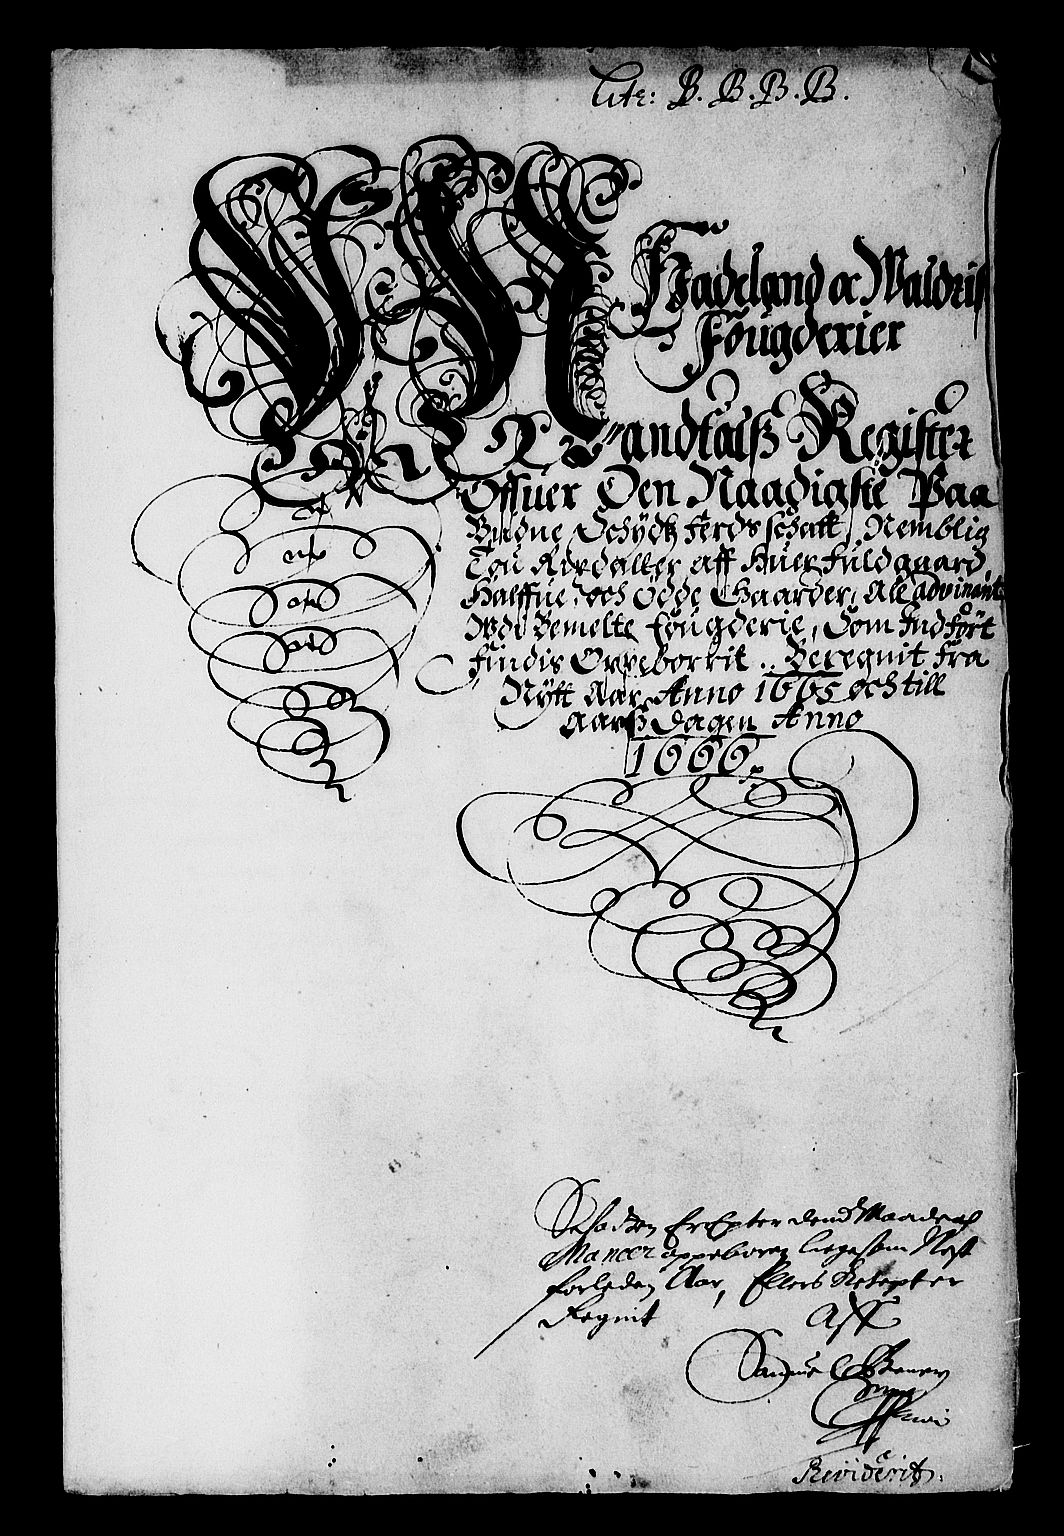 Litr: B. B. B. B.
Hadeland oc Waldris
Fougderier
Mandtalß Register
Offuer Den Naadigste Paa
Budne Schydtz ferds schatt, Nemblig
Tou Rixdaller aff Huer fuldgaard,
Halffue, och Ödde Gaarder, Ale advinant
Udi Bemelte fougderie, Som Indfört
findis Oppeborrit .. Beregnit Fra
Nytt Aar Anno 1665 och till
Aarß Dagen Anno
1666.
Schatten Er Epter dend Maade och
Maneer oppeboren liigesom Nest
forleden Aar, Ellers Retepter
Regnit Aff
Samuel
Reviderit.